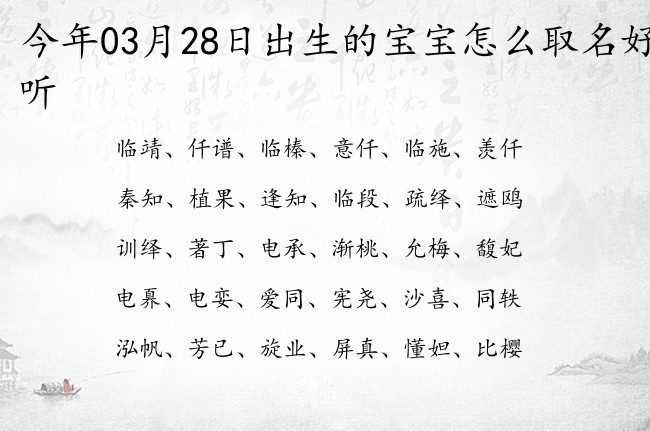 今年03月28日出生的宝宝怎么取名好
听
临靖、仟谱、临榛、意仟、临施、羡仟
秦知、植果、逢知、临段、疏绎、遮鸥
训绎、著丁、电承、渐桃、允梅、馥妃
电奡、电娈、爱同、宪尧、沙喜、同轶
泓帆、芳已、旋业、屏真、懂妲、比樱